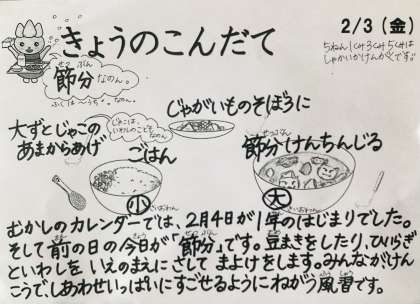 きょうのこんだて
2/3(金)
5ねん1くみ3くみ5くみは
しゃかいかけんがくです。
せつ ぶん
節分なのん。
ふくは〜うち。なのん。
じゃがいものそぼろに
大ずとじゃこの
あまからあげ
じゃこは、
いわしのこどもなのん。
ごはん
小
節分けんちんじる
大
むかしのカレンダーでは、2月4日が1年のはじまりでした。
そして前の日の今日が「節分」です。豆まきをしたり、ひいらぎ
といわしを いえのまえに さして まよけをします。みんながけん
こうでしあわせいっぱいにすごせるようにねがう風習です。